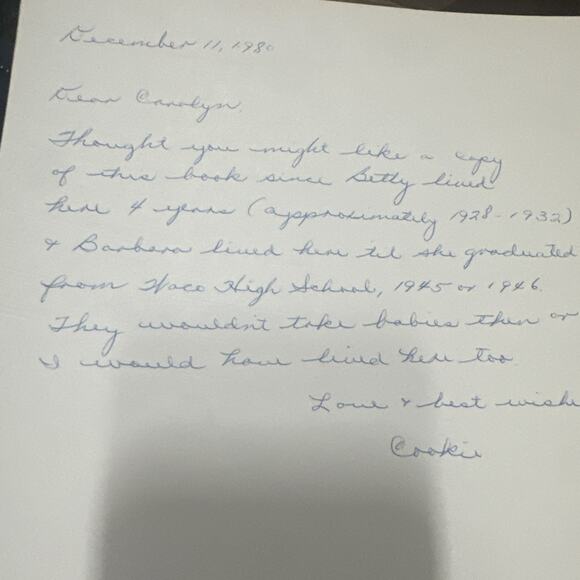 December 11, 1980
Dear Carolyn,
Thought you might like a copy
of this book since Betty lived
here 4 years (approximately 1928-1932)
& Barbara lived here til she graduated
from Waco High School, 1945 or 1946.
They wouldn't take babies then or
I would have lived here too.
Love & best wishe
Cookie